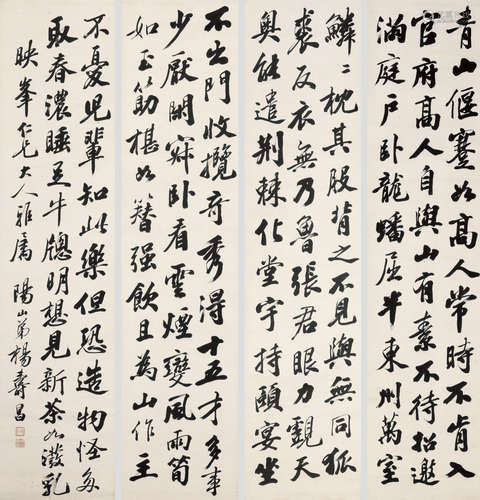 青山偃蹇如高人常時不肯入
官府高人自與山有素不待招邀
滿庭戶臥龍蟠屈半東州萬室
鱗〻枕其股背之不見與無同狐
裘反衣無乃魯張君眼力覷天
奧能遣荆棘化堂宇持頤宴坐
不出門收攬奇秀得十五才多事
少厭閒寂臥看雲煙變風雨筍
如玉筯椹如簪强飲且為山作主
不憂兒輩知此樂但恐造物怪多
取春濃睡足午牕明想見新茶如潑乳
映峯仁兄大人雅屬 陽山弟楊壽昌